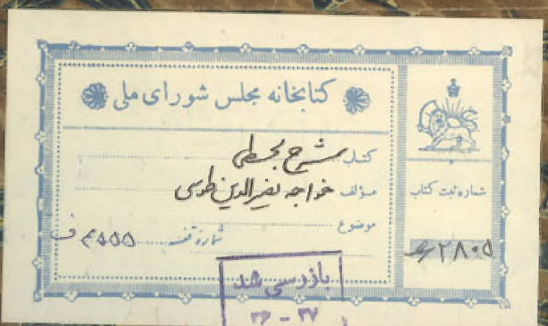 کتابخانه مجلس شورای ملی
کتاب شرح مجسطی
مؤلف خواجه نصیرالدین طوسی
موضوع
شماره قفسه ۴۵۵۵
شماره ثبت کتاب
۲۸۰۵
بازرسی شد
۳۶ - ۳۷